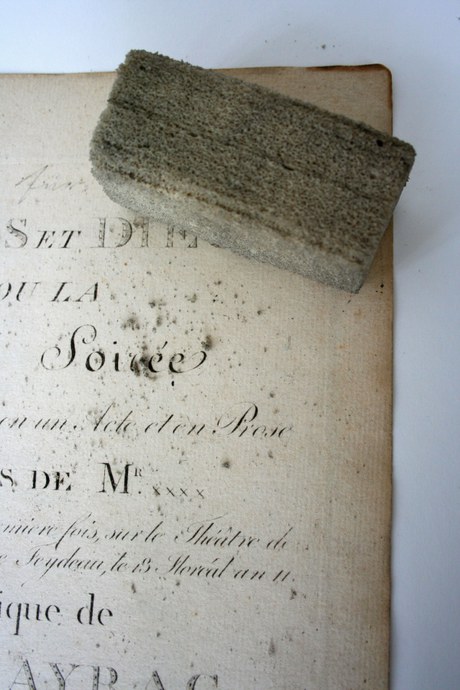 S ET DIE
OU LA
Soirée
en un Acte et en Prose
S DE MR. XXXX
miere fois, sur le Théâtre de
Feydeau, le 13 Floréal an 11.
ique de
AYRAC